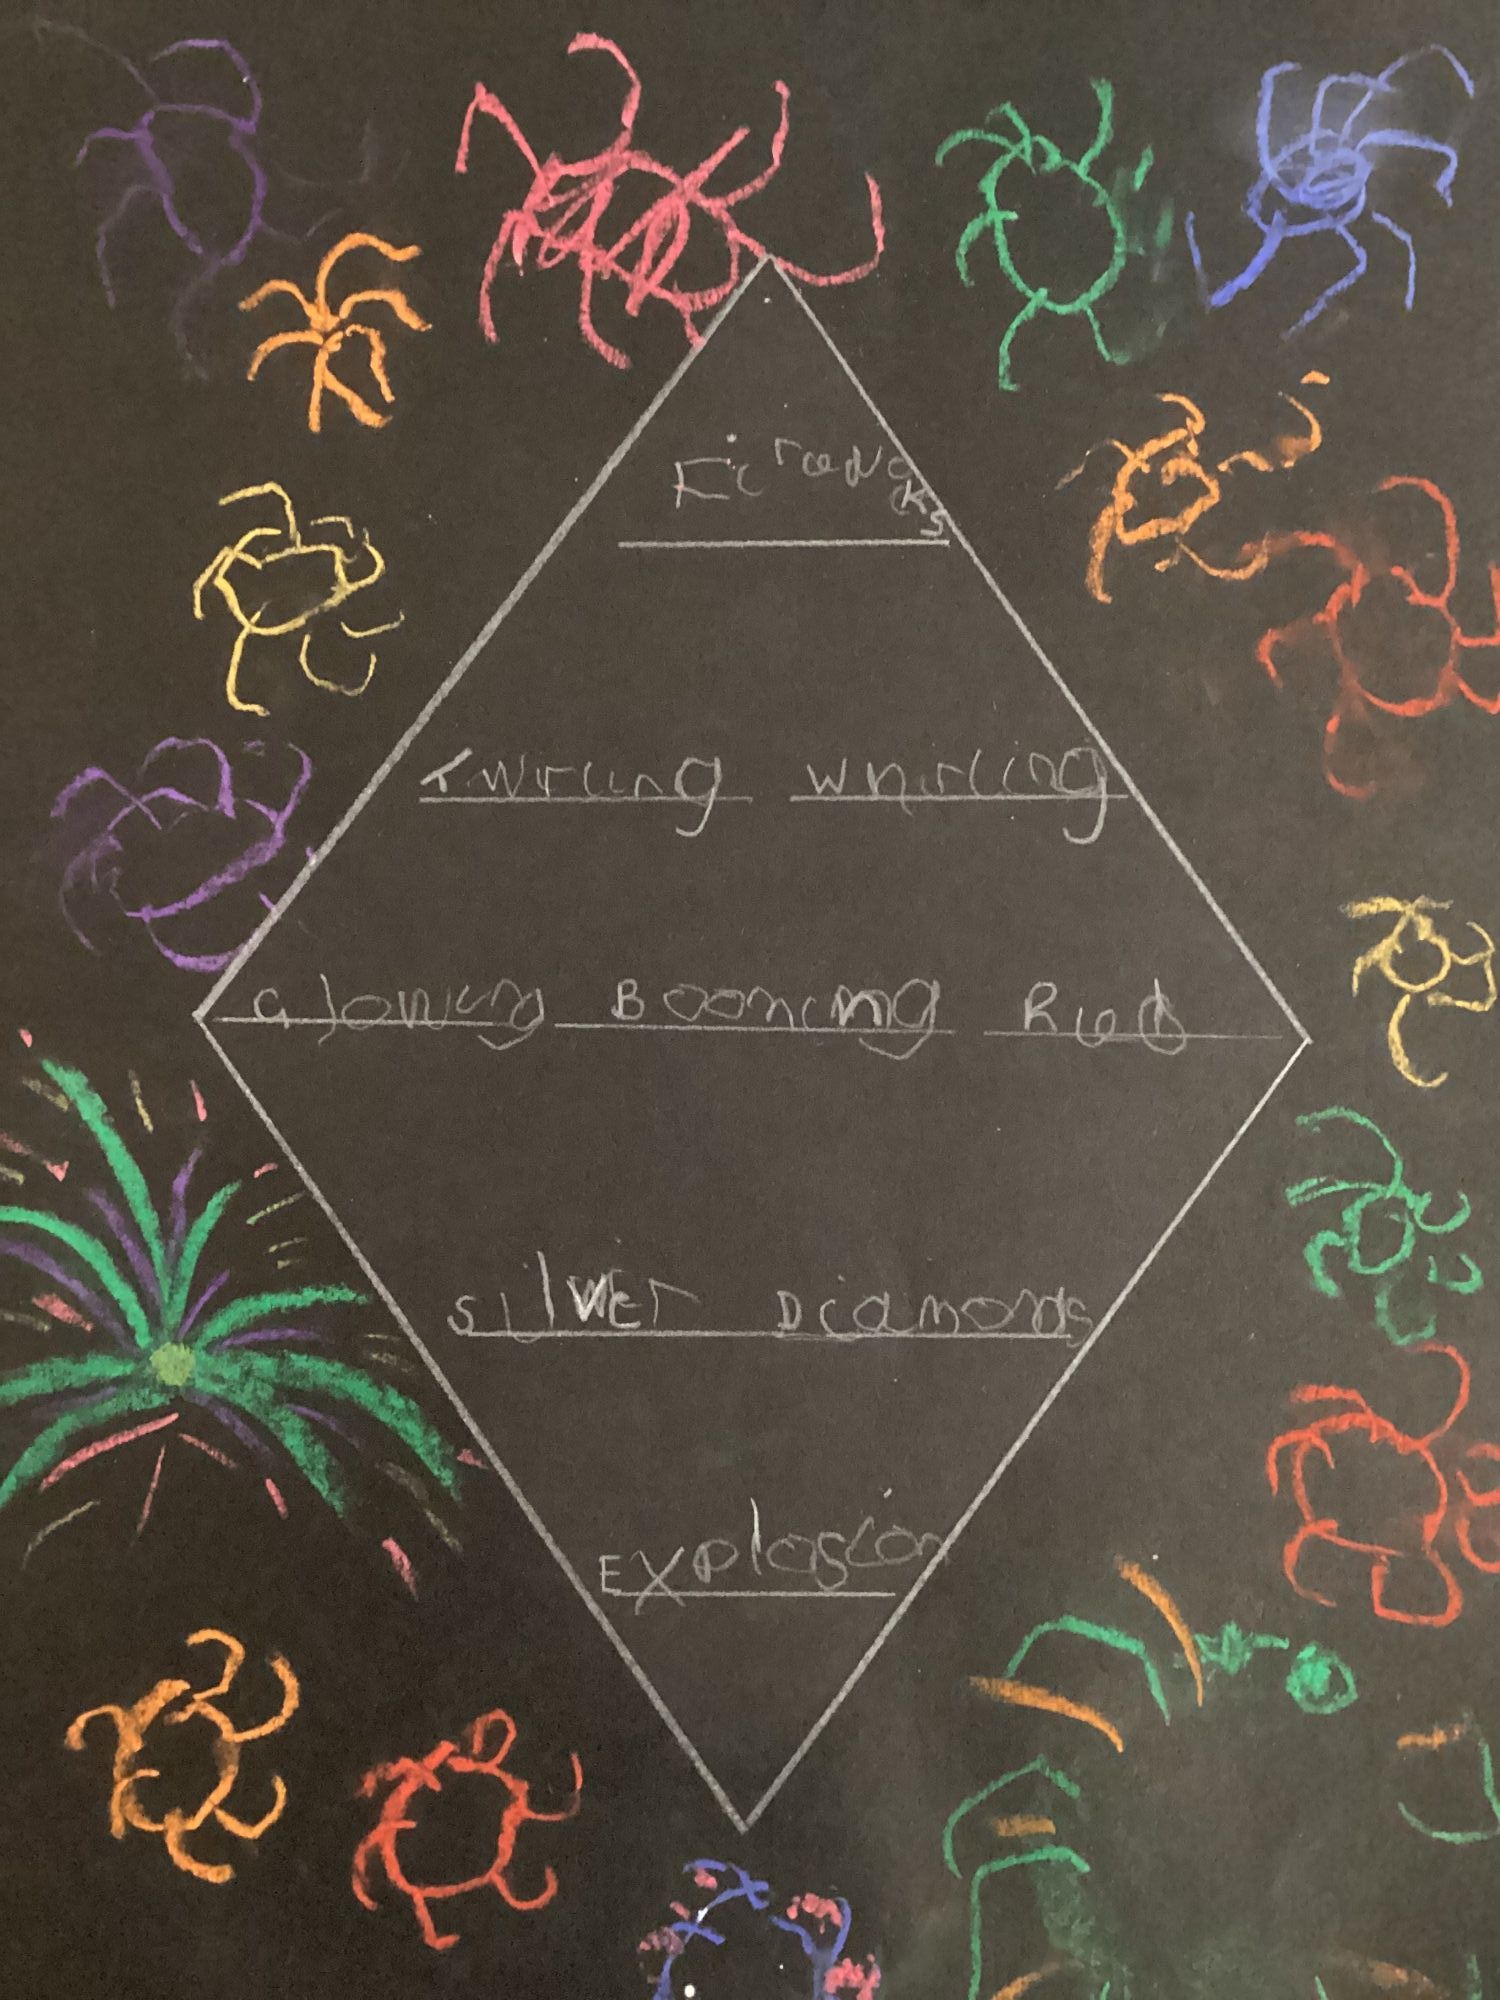 Firewoks
Twirling Whirling
Glowing Booming Red
Silver Diamonds
Explosion